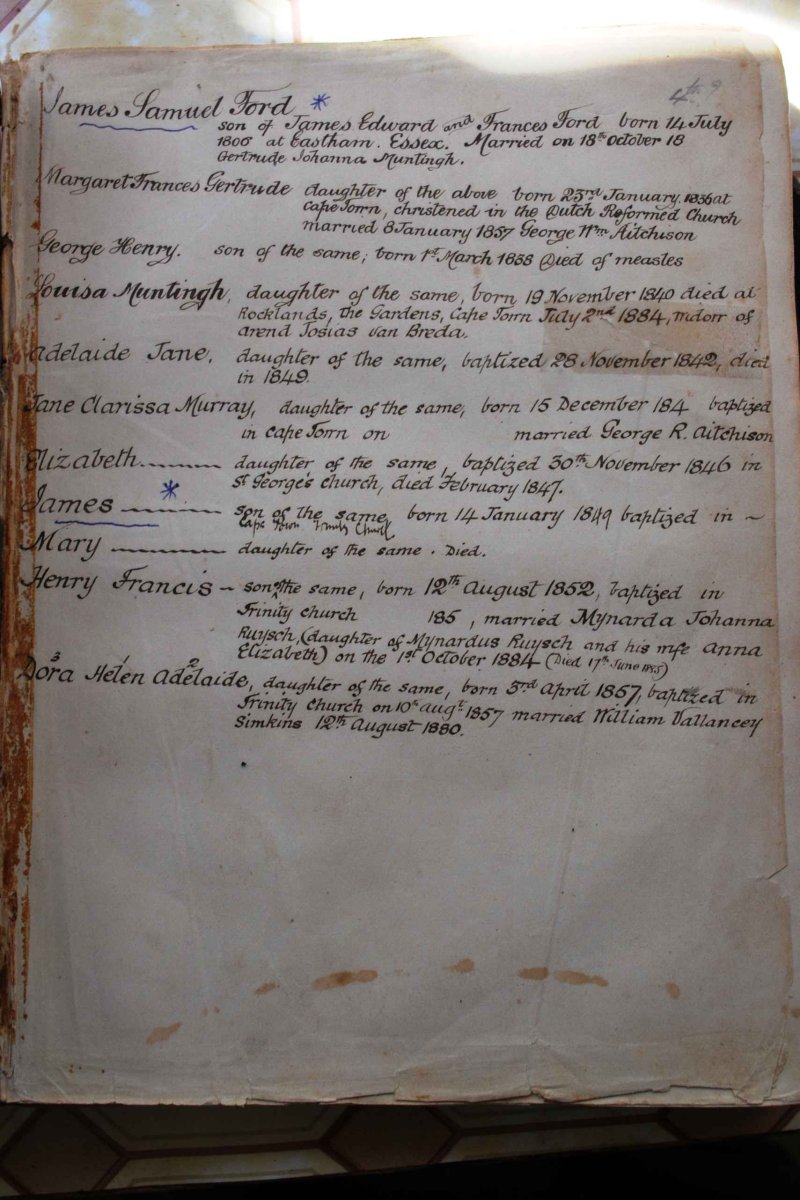 4th
James Samuel Ford *
son of James Edward and Frances Ford born 14 July
1806 at Eastham. Essex. Married on 18th October 18
Gertrude Johanna Muntingh.
Margaret Frances Gertrude daughter of the above born 23rd January 1836 at
Cape Town, christened in the Dutch Reformed Church
married 8 January 1857 George Wm Aitchison
George Henry. son of the same, born 1st March 1838 Died of measles
Louisa Muntingh, daughter of the same, born 19 November 1840 died at
Rocklands, the Gardens, Cape Town July 2nd 1884, widow of
Arend Josias van Breda.
Adelaide Jane, daughter of the same, baptized 28 November 1842, died
in 1849.
Jane Clarissa Murray, daughter of the same, born 15 December 184 baptized
in Cape Town on married George R. Aitchison
Elizabeth daughter of the same, baptized 30th November 1846 in
St George's Church, died February 1847.
James * son of the same, born 14 January 1849 baptized in ~
Cape Town Trinity Church
Mary daughter of the same. Died.
Henry Francis ~ son of the same, born 12th August 1852, baptized in
Trinity Church 185 , married Mynarda Johanna
Ruysch, (daughter of Mynardus Ruysch and his wife Anna
Elizabeth) on the 1st October 1884 (Died 17th June 1885)
3 1 2
Dora Helen Adelaide, daughter of the same, born 3rd April 1857, baptized in
Trinity Church on 10th Augt 1857 married William Vallancey
Simkins 12th August 1880.